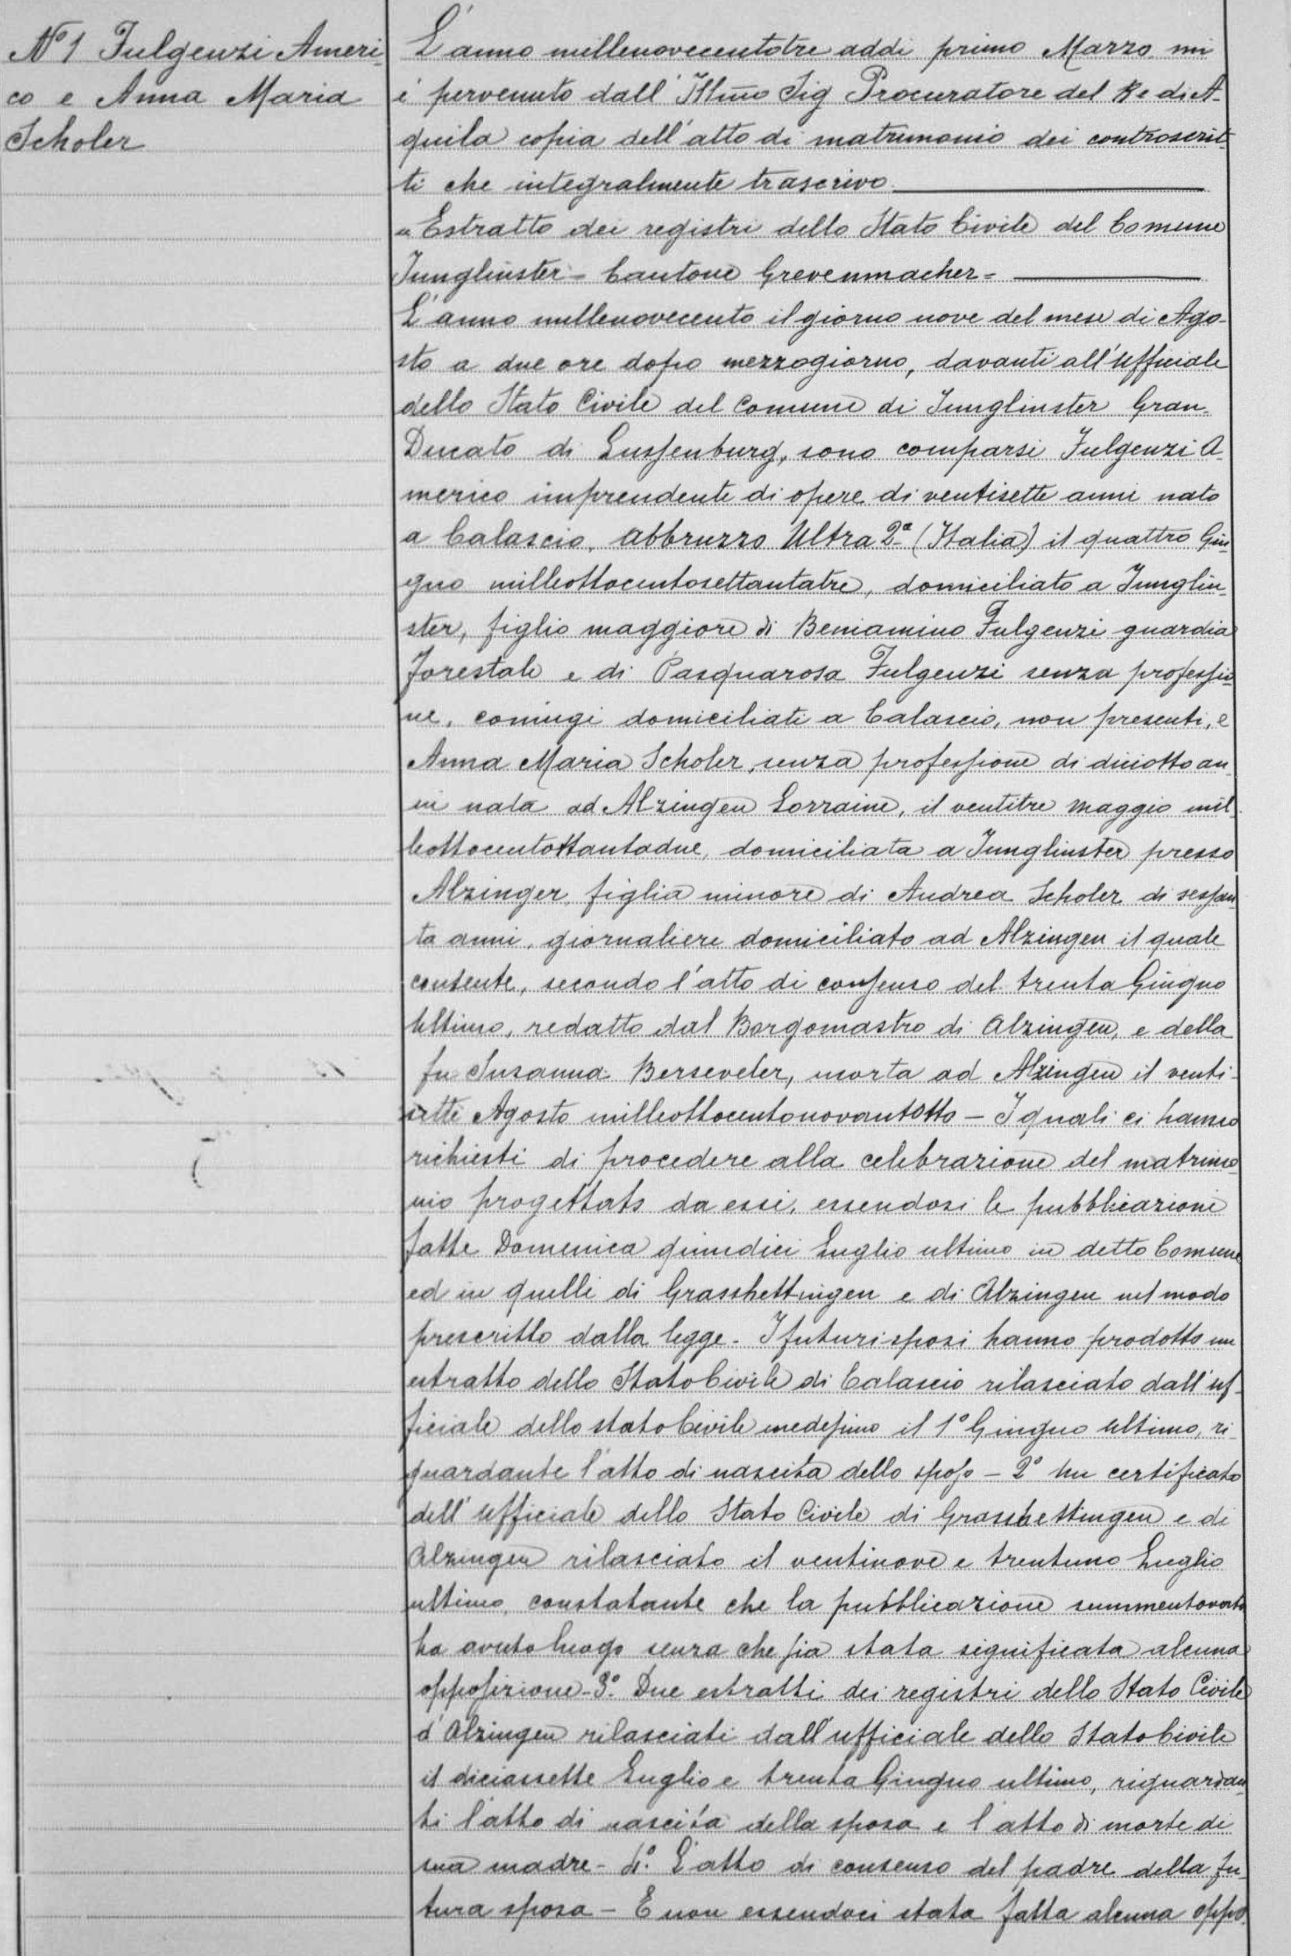 N° 1 Fulgenzi Ameri-
co e Anna Maria
Scholer
L'anno millenovecentotre addi primo Marzo mi
è pervenuto dall'Illmo Sig Procuratore del Re di A-
quila copia dell'atto di matrimonio dei controscrit-
ti che integralmente trascrivo.
"Estratto dei registri dello Stato Civile del Comune
Junglinster - Cantone Grevenmacher -
L'anno millenovecento il giorno nove del mese di Ago-
sto a due ore dopo mezzogiorno, davanti all'Ufficiale
dello Stato Civile del Comune di Junglinster Gran-
Ducato di Lussenburg, sono comparsi Fulgenzi A-
merico imprendente di opere di ventisette anni nato
a Calascio, Abbruzzo Ultra 2ª (Italia) il quattro Giu-
gno milleottocentosettantatre, domiciliato a Junglin-
ster, figlio maggiore di Beniamino Fulgenzi guardia
forestale e di Pasquarosa Fulgenzi senza professio-
ne, coniugi domiciliati a Calascio, non presenti, e
Anna Maria Scholer, senza professione di diciotto an-
ni nata ad Alzingen Lorraine, il ventitre Maggio mil-
leottocentottantadue, domiciliata a Junglinster presso
Alzinger, figlia minore di Andrea Scholer di sessan-
ta anni, giornaliere domiciliato ad Alzingen il quale
consente, secondo l'atto di consenso del trenta Giugno
ultimo, redatto dal Borgomastro di Alzingen, e della
fu Susanna Berseveler, morta ad Alzingen il venti-
sette Agosto milleottocentonovantotto - I quali ci hanno
richiesti di procedere alla celebrazione del matrimo-
nio progettato da essi, essendosi le pubblicazioni
fatte Domenica quindici Luglio ultimo in detto Comune
ed in quelli di Grasshettingen e di Alzingen nel modo
prescritto dalla legge - I futuri sposi hanno prodotto un
estratto dello Stato Civile di Calascio rilasciato dall'uf-
ficiale dello stato Civile medesimo il 1° Giugno ultimo, ri-
guardante l'atto di nascita dello sposo - 2° Un certificato
dell'Ufficiale dello Stato Civile di Grasshettingen e di
Alzingen rilasciato il ventinove e trentuno Luglio
ultimo, constatante che la pubblicazione summentovata
ha avuto luogo senza che sia stata significata alcuna
opposizione - 3° Due estratti dei registri dello Stato Civile
d'Alzingen rilasciati dall'ufficiale dello Stato Civile
il diciassette Luglio e trenta Giugno ultimo, riguardan-
ti l'atto di nascita della sposa e l'atto di morte di
sua madre - 4° L'atto di consenso del padre della fu-
tura sposa - E non essendoci stata fatta alcuna oppo-